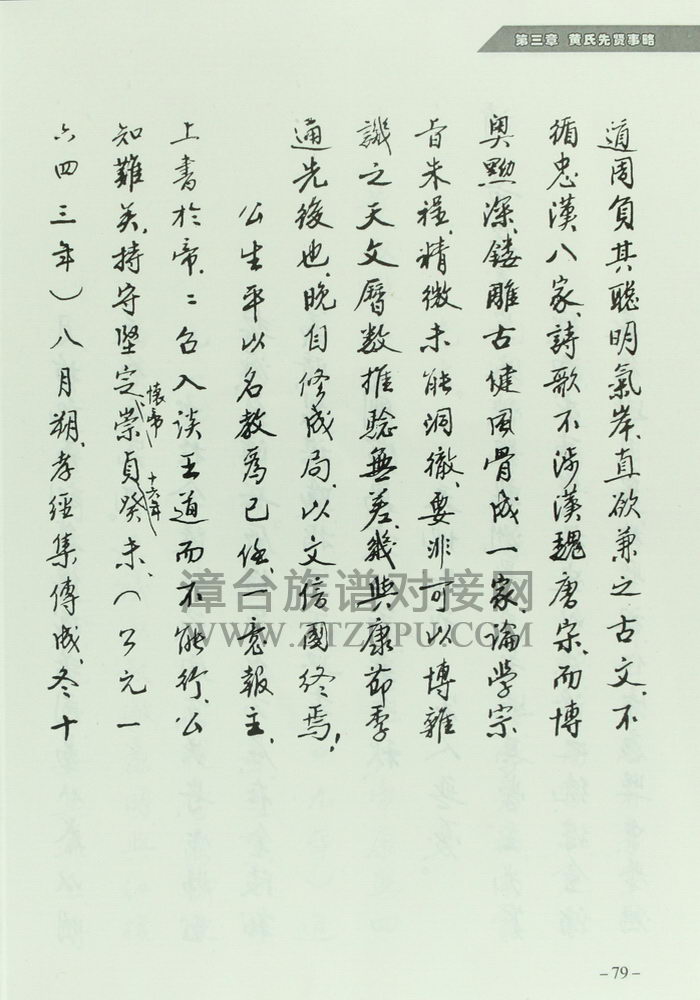 第三章 黄氏先贤事略
道周負其聰明氣岸、直欲兼之古文、不
循忠漢八家、詩歌不涉漢魏唐宋、而博
奥黝深、鏤雕古健風骨成一家、論學宗
旨朱程、精微未能洞徹、要非可以博雜
譏之天文曆數推驗無差、幾與康節季
通先後也、晚自修成局、以文信國終焉，
公生平以名教爲已任、一意報主、
上書於帝、二召入談王道而不能行、公
知難矣、持守堅定崇貞癸未、（公元一
懷帝 十六年
六四三年）八月朔、孝經集傳成、冬十
漳台族谱对接网
WWW.ZTZUPU.COM
-79-